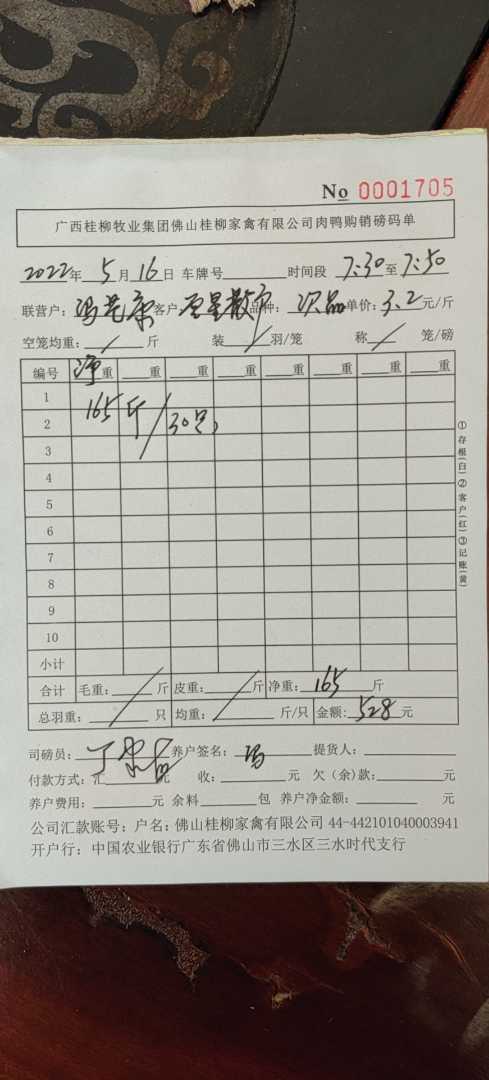 No 0001705
广西桂柳牧业集团佛山桂柳家禽有限公司肉鸭购销磅码单
2022年 5月16日 车牌号 时间段 7:30至7:50
联营户: 冯 客户 散户 品种: 次品 单价: 3.2元/斤
空笼均重: / 斤 装 / 羽/笼 称 / 笼/磅
编号 净重 重 重 重 重 重 重 重
1
165斤/30只
2
3
4
5
6
7
8
9
10
小计
合计 毛重: / 斤 皮重: / 斤 净重: 165 斤
总羽重: / 只 均重: / 斤/只 金额: 528元
司磅员: 丁 养户签名: 冯 提货人:
付款方式: 汇 元 收: 元 欠(余)款: 元
养户费用: 元 余料 包 养户净金额: 元
公司汇款账号: 户名: 佛山桂柳家禽有限公司 44-442101040003941
开户行: 中国农业银行广东省佛山市三水区三水时代支行
①存根(白)②客户(红)③记账(黄)